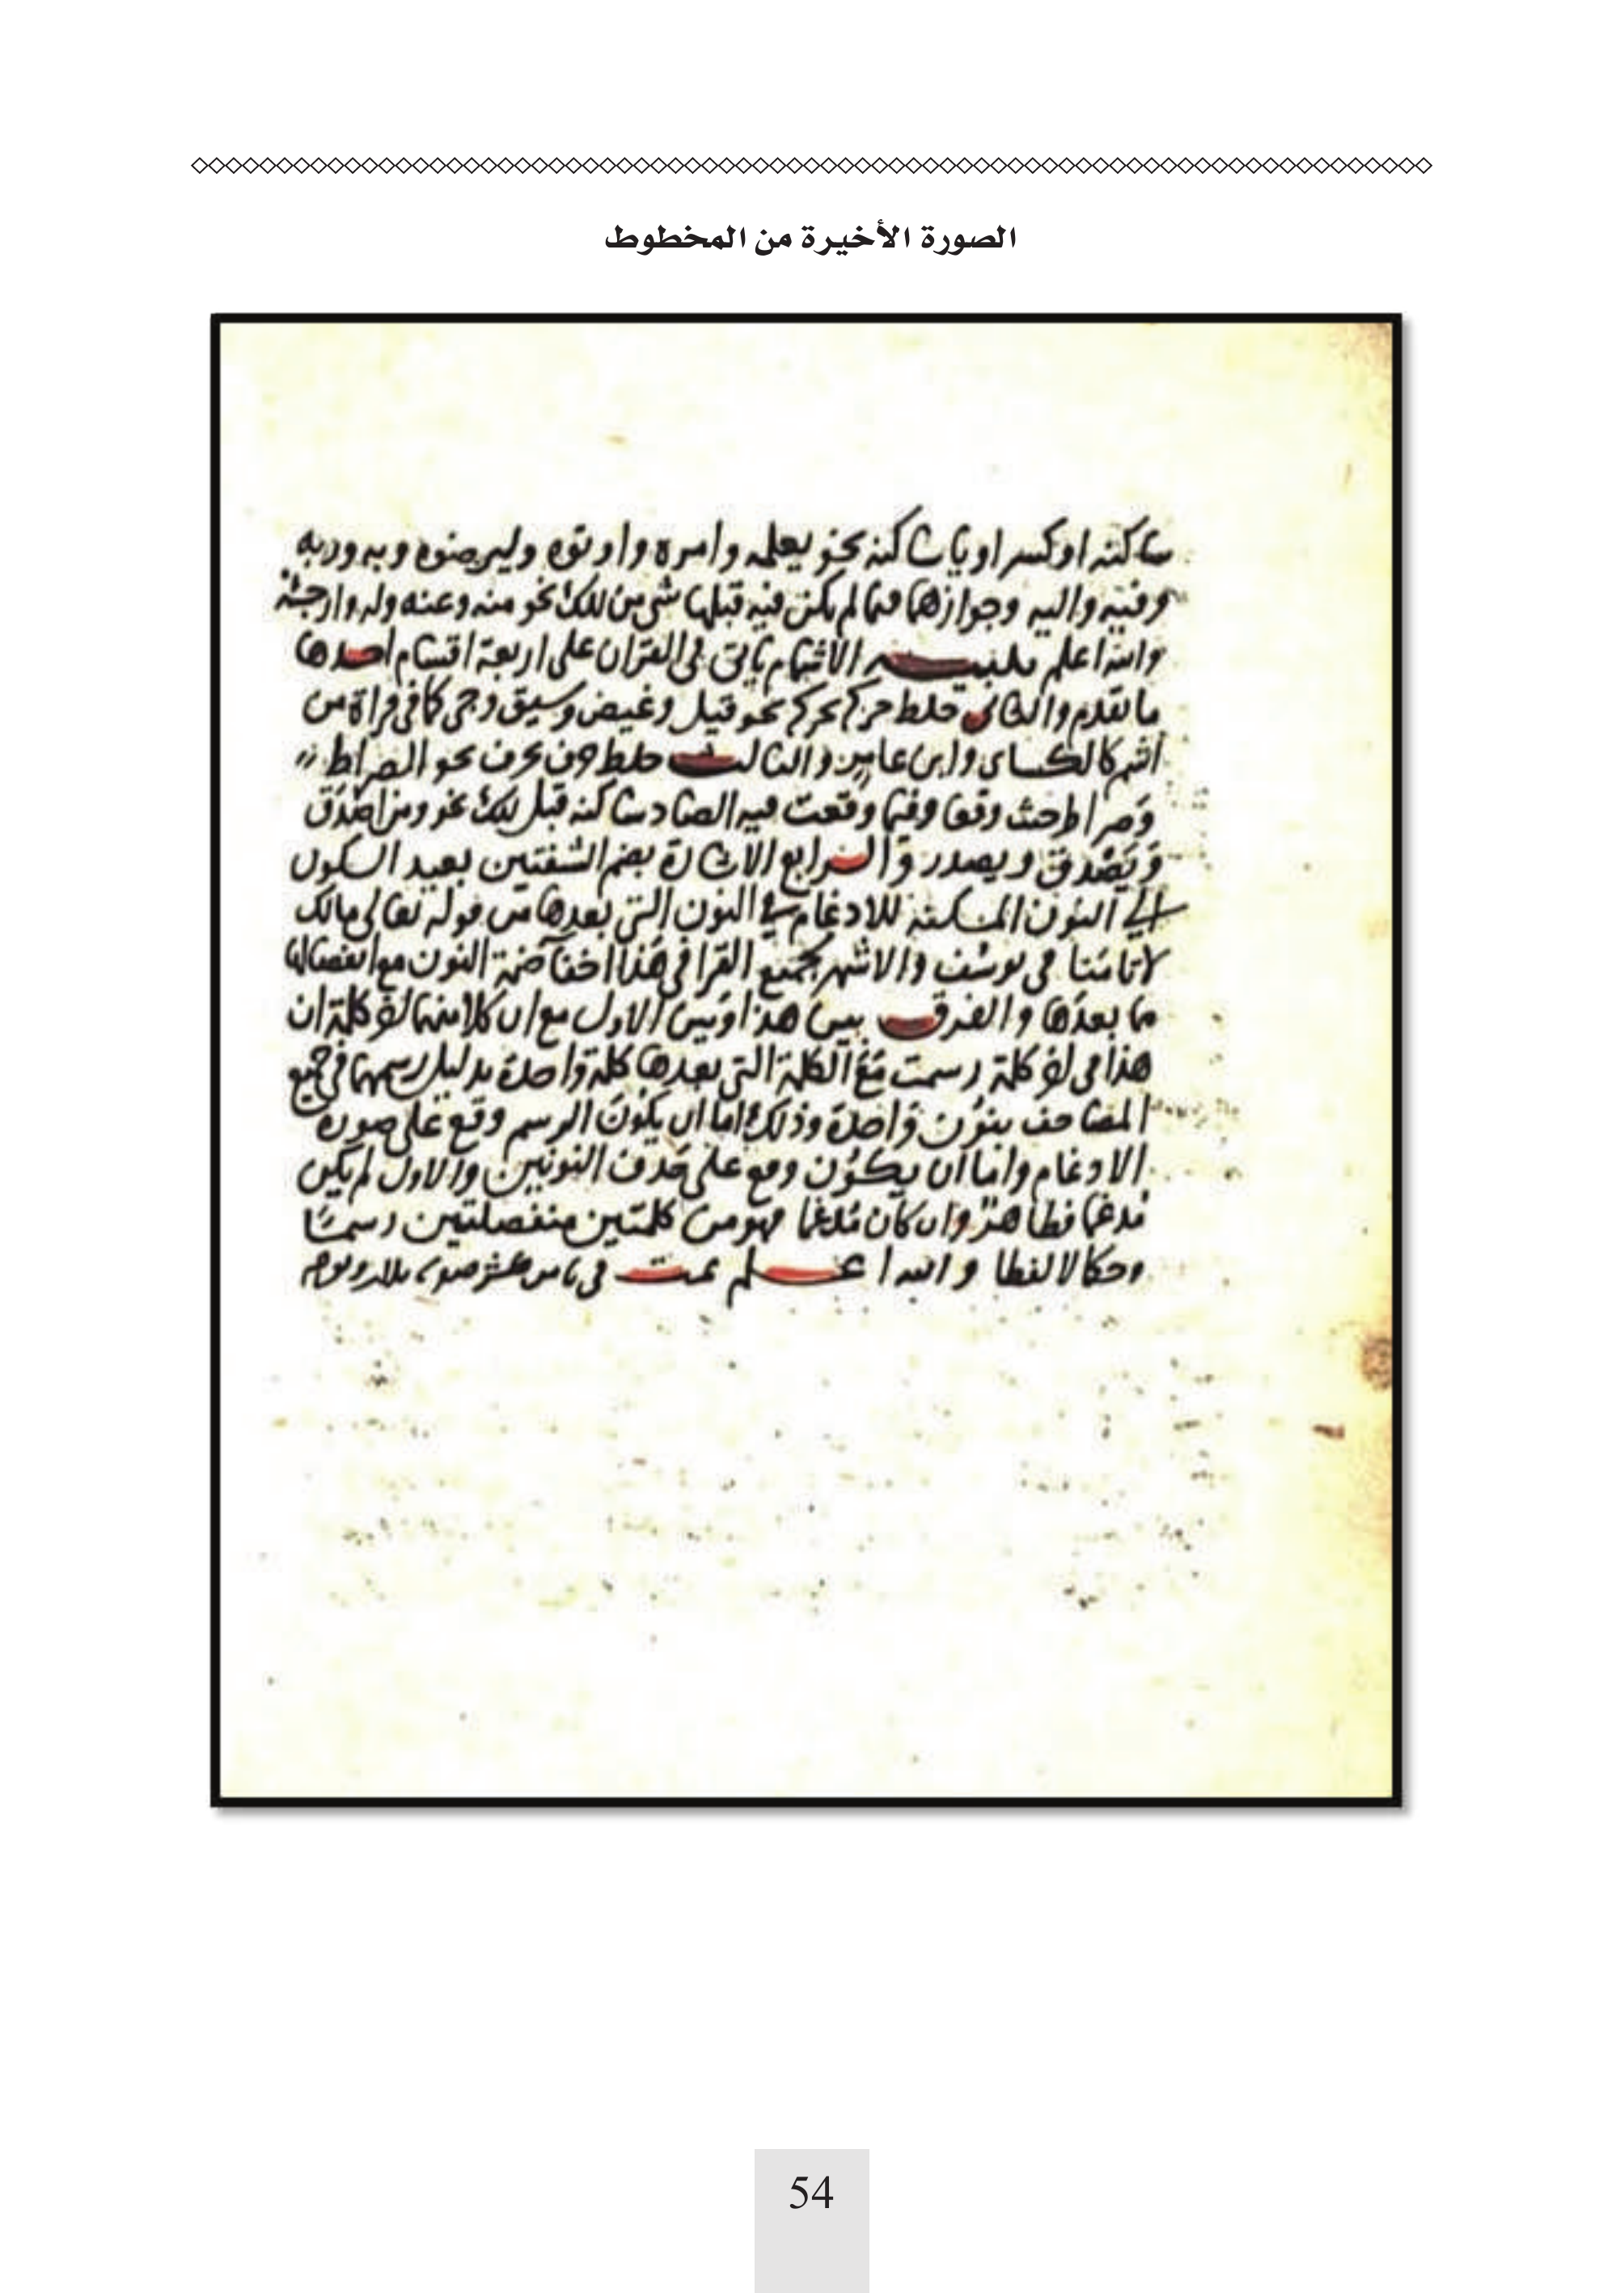 الصورة الأخيرة من المخطوط
ساكنه او كسر او يا ساكنه نحو يعلمه وامره وليرضوه وبه وربه
وفيه واليه وجوازها فيما لم يكن فيه قبلها شي من ذلك نحو منه وعنه وله وارجئه
والله اعلم الاشمام ياتى فى القران على اربعة اقسام احدها
ما تقدم والثانى خلط حركه بحركه نحو قيل وغيض وسيق وجى كما فى قراة من
اشم كالكساى وابن عامر والثالث خلط حرف بحرف نحو الصراط
وصراط حيث وقعا وفيما وقعت فيه الصاد ساكنه قبل نحو ومن اصدق
ويصدق ويصدر والرابع الاشارة بضم الشفتين بعيد السكون
فى النون المسكنة للادغام فى النون التى بعدها من قوله تعالى مالك
لا تامنا فى يوسف والاشهر لجميع القرا فى هذا اخفا ضمة النون مع انفصالها
مما بعدها والفرق بين هذا وبين الاول مع ان كلا منهما كلمة ان
هذا فى كلمة رسمت مع الكلمة التى بعدها كلمة واحدة بدليل رسمهما فى جميع
المصاحف بنون واحدة وذلك اما ان يكون الرسم وقع على صورة
الادغام واما ان يكون وقع على حذف النونين والاول لم يكن
مدغما فظاهر وان كان مدغما فهو من كلمتين منفصلتين رسما
وحكما لا لفظا والله اعلم تمت فى
54